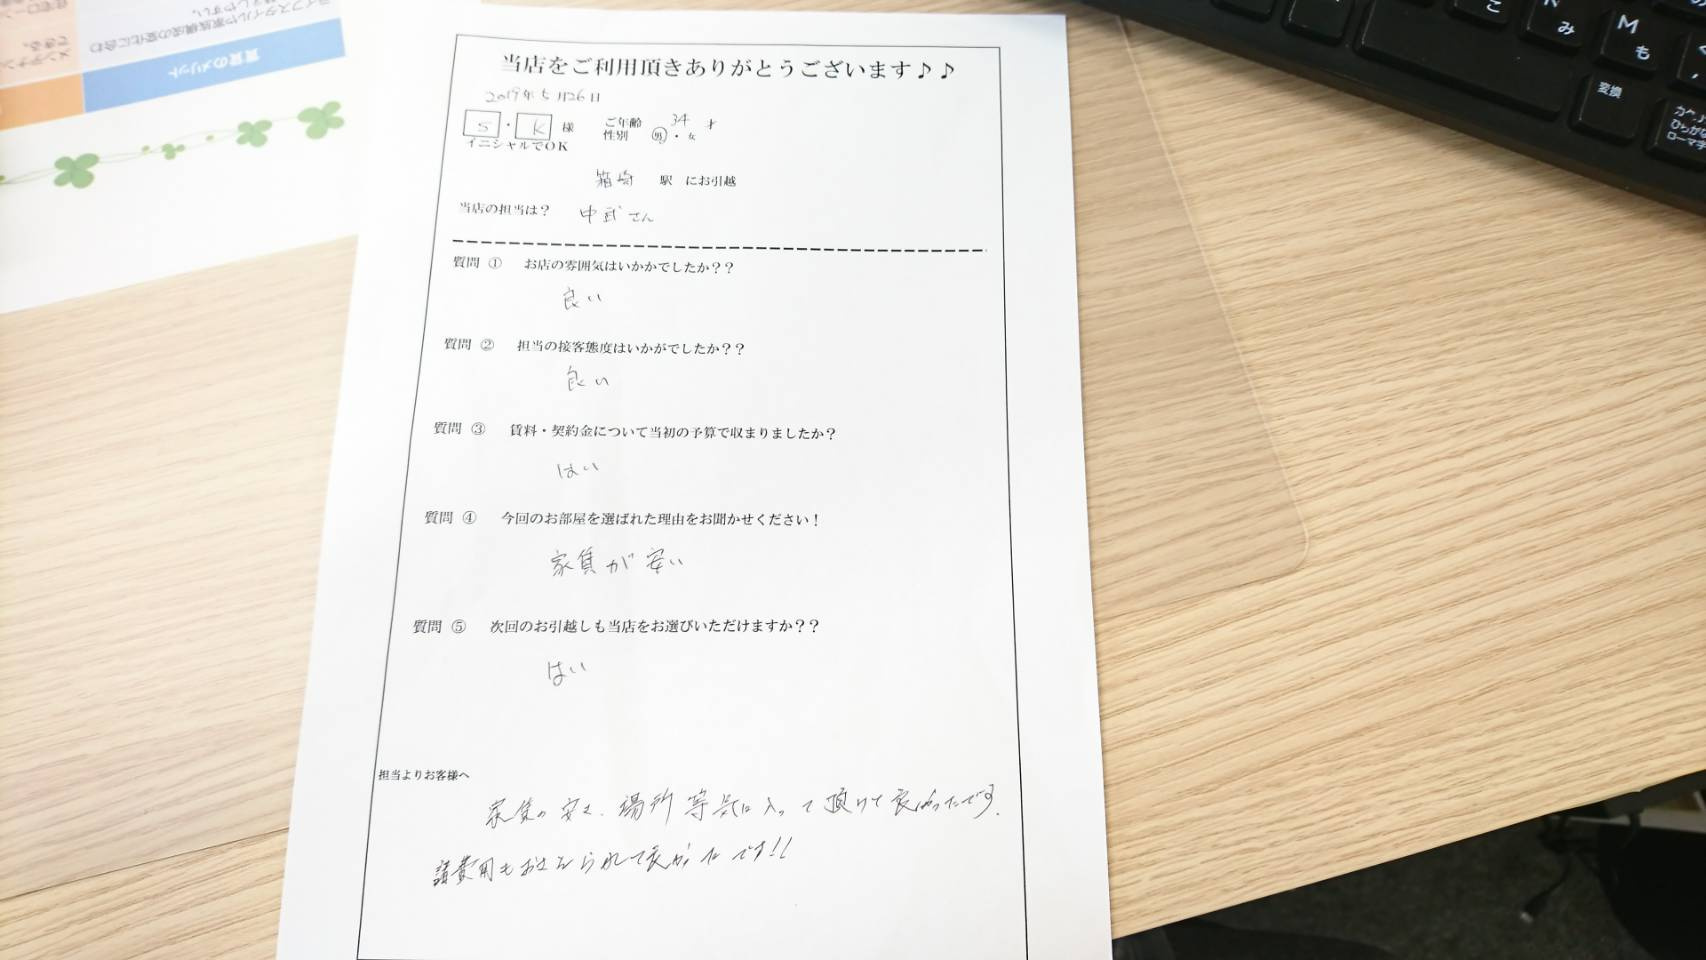 当店をご利用頂きありがとうございます♪♪
2019年5月26日
S・K 様 ご年齢 34 才
イニシャルでOK 性別 男・女
箱崎 駅 にお引越
当店の担当は? 中武さん
質問 ① お店の雰囲気はいかかでしたか??
良い
質問 ② 担当の接客態度はいかがでしたか??
良い
質問 ③ 賃料・契約金について当初の予算で収まりましたか?
はい
質問 ④ 今回のお部屋を選ばれた理由をお聞かせください!
家賃が安い
質問 ⑤ 次回のお引越しも当店をお選びいただけますか??
はい
担当よりお客様へ
家賃の安さ、場所等気に入って頂けて良かったです。
諸費用もおさえられて良かったです!!
賃貸のメリット
ライフスタイルや家族構成の変化に合わ
メンテナン
できる。
住宅ローン
こ
み
M
も
変換
ひらがな
ローマ字